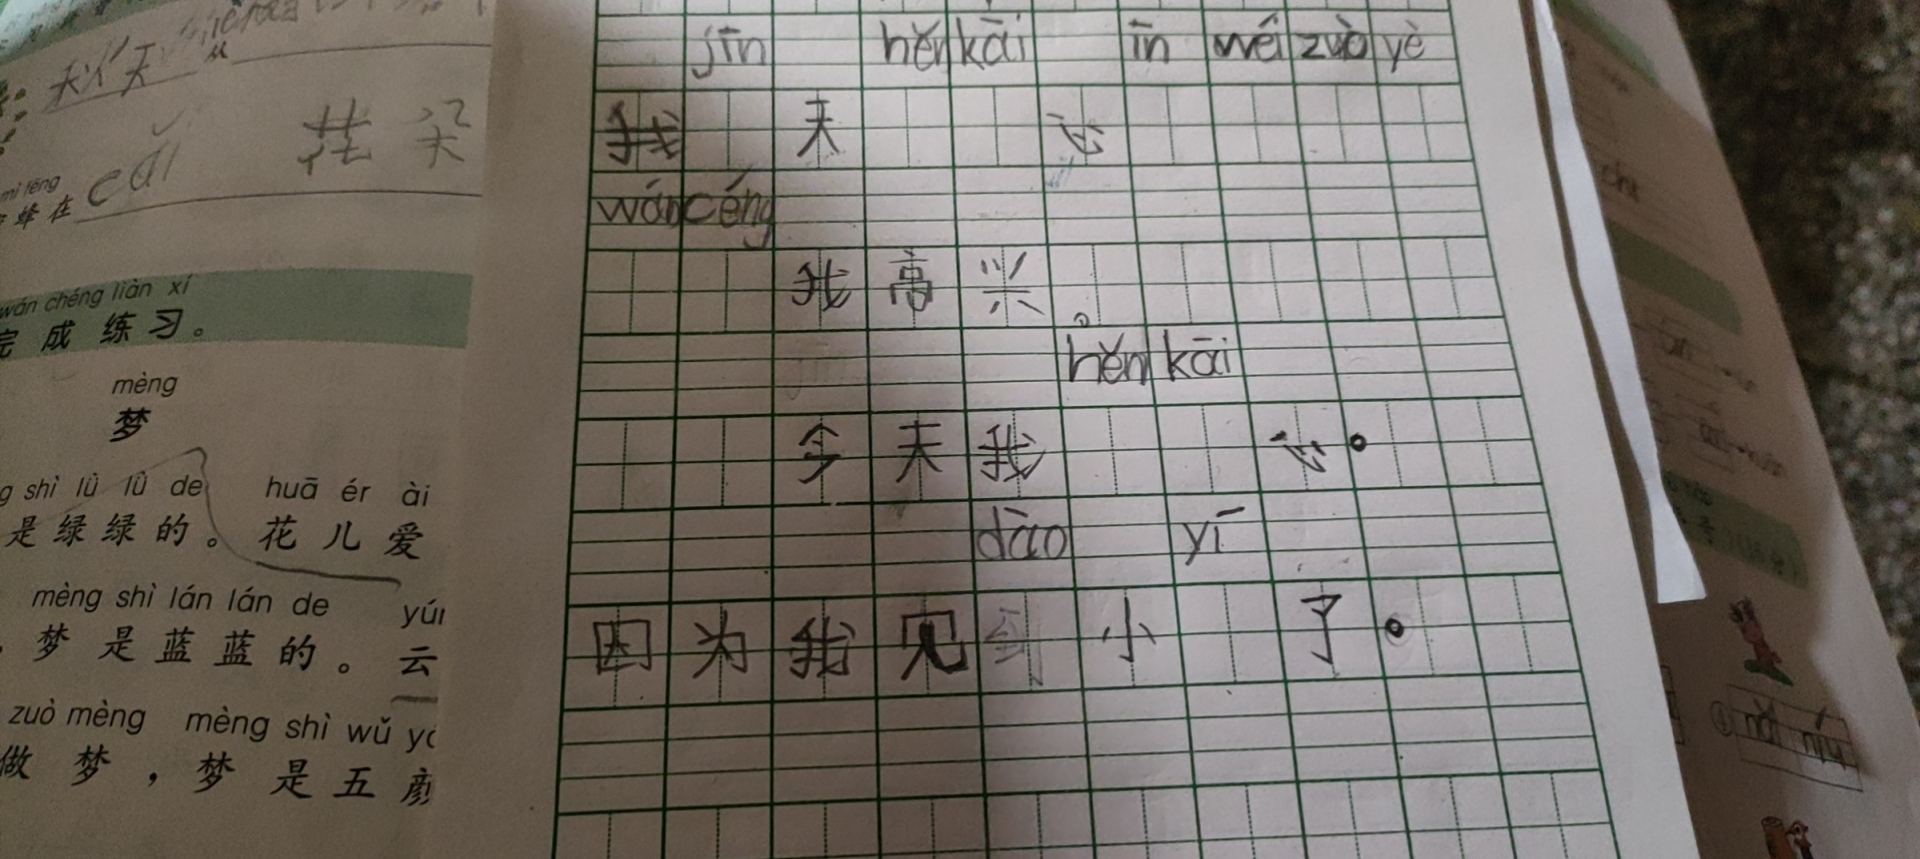 秋天
花朵
cǎi
mì fēng
蜂在
wán chéng liàn xí
完成练习。
mèng
梦
g shì lǜ lǜ de huā ér ài
是绿绿的。花儿爱
mèng shì lán lán de yún
梦是蓝蓝的。云
zuò mèng mèng shì wǔ
做梦，梦是五颜
jīn hěn kāi īn wéi zuò yè
我 天 心
wán céng
我高兴。
hěn kāi
今天我 心。
dāo yī
因为我见到小 了。